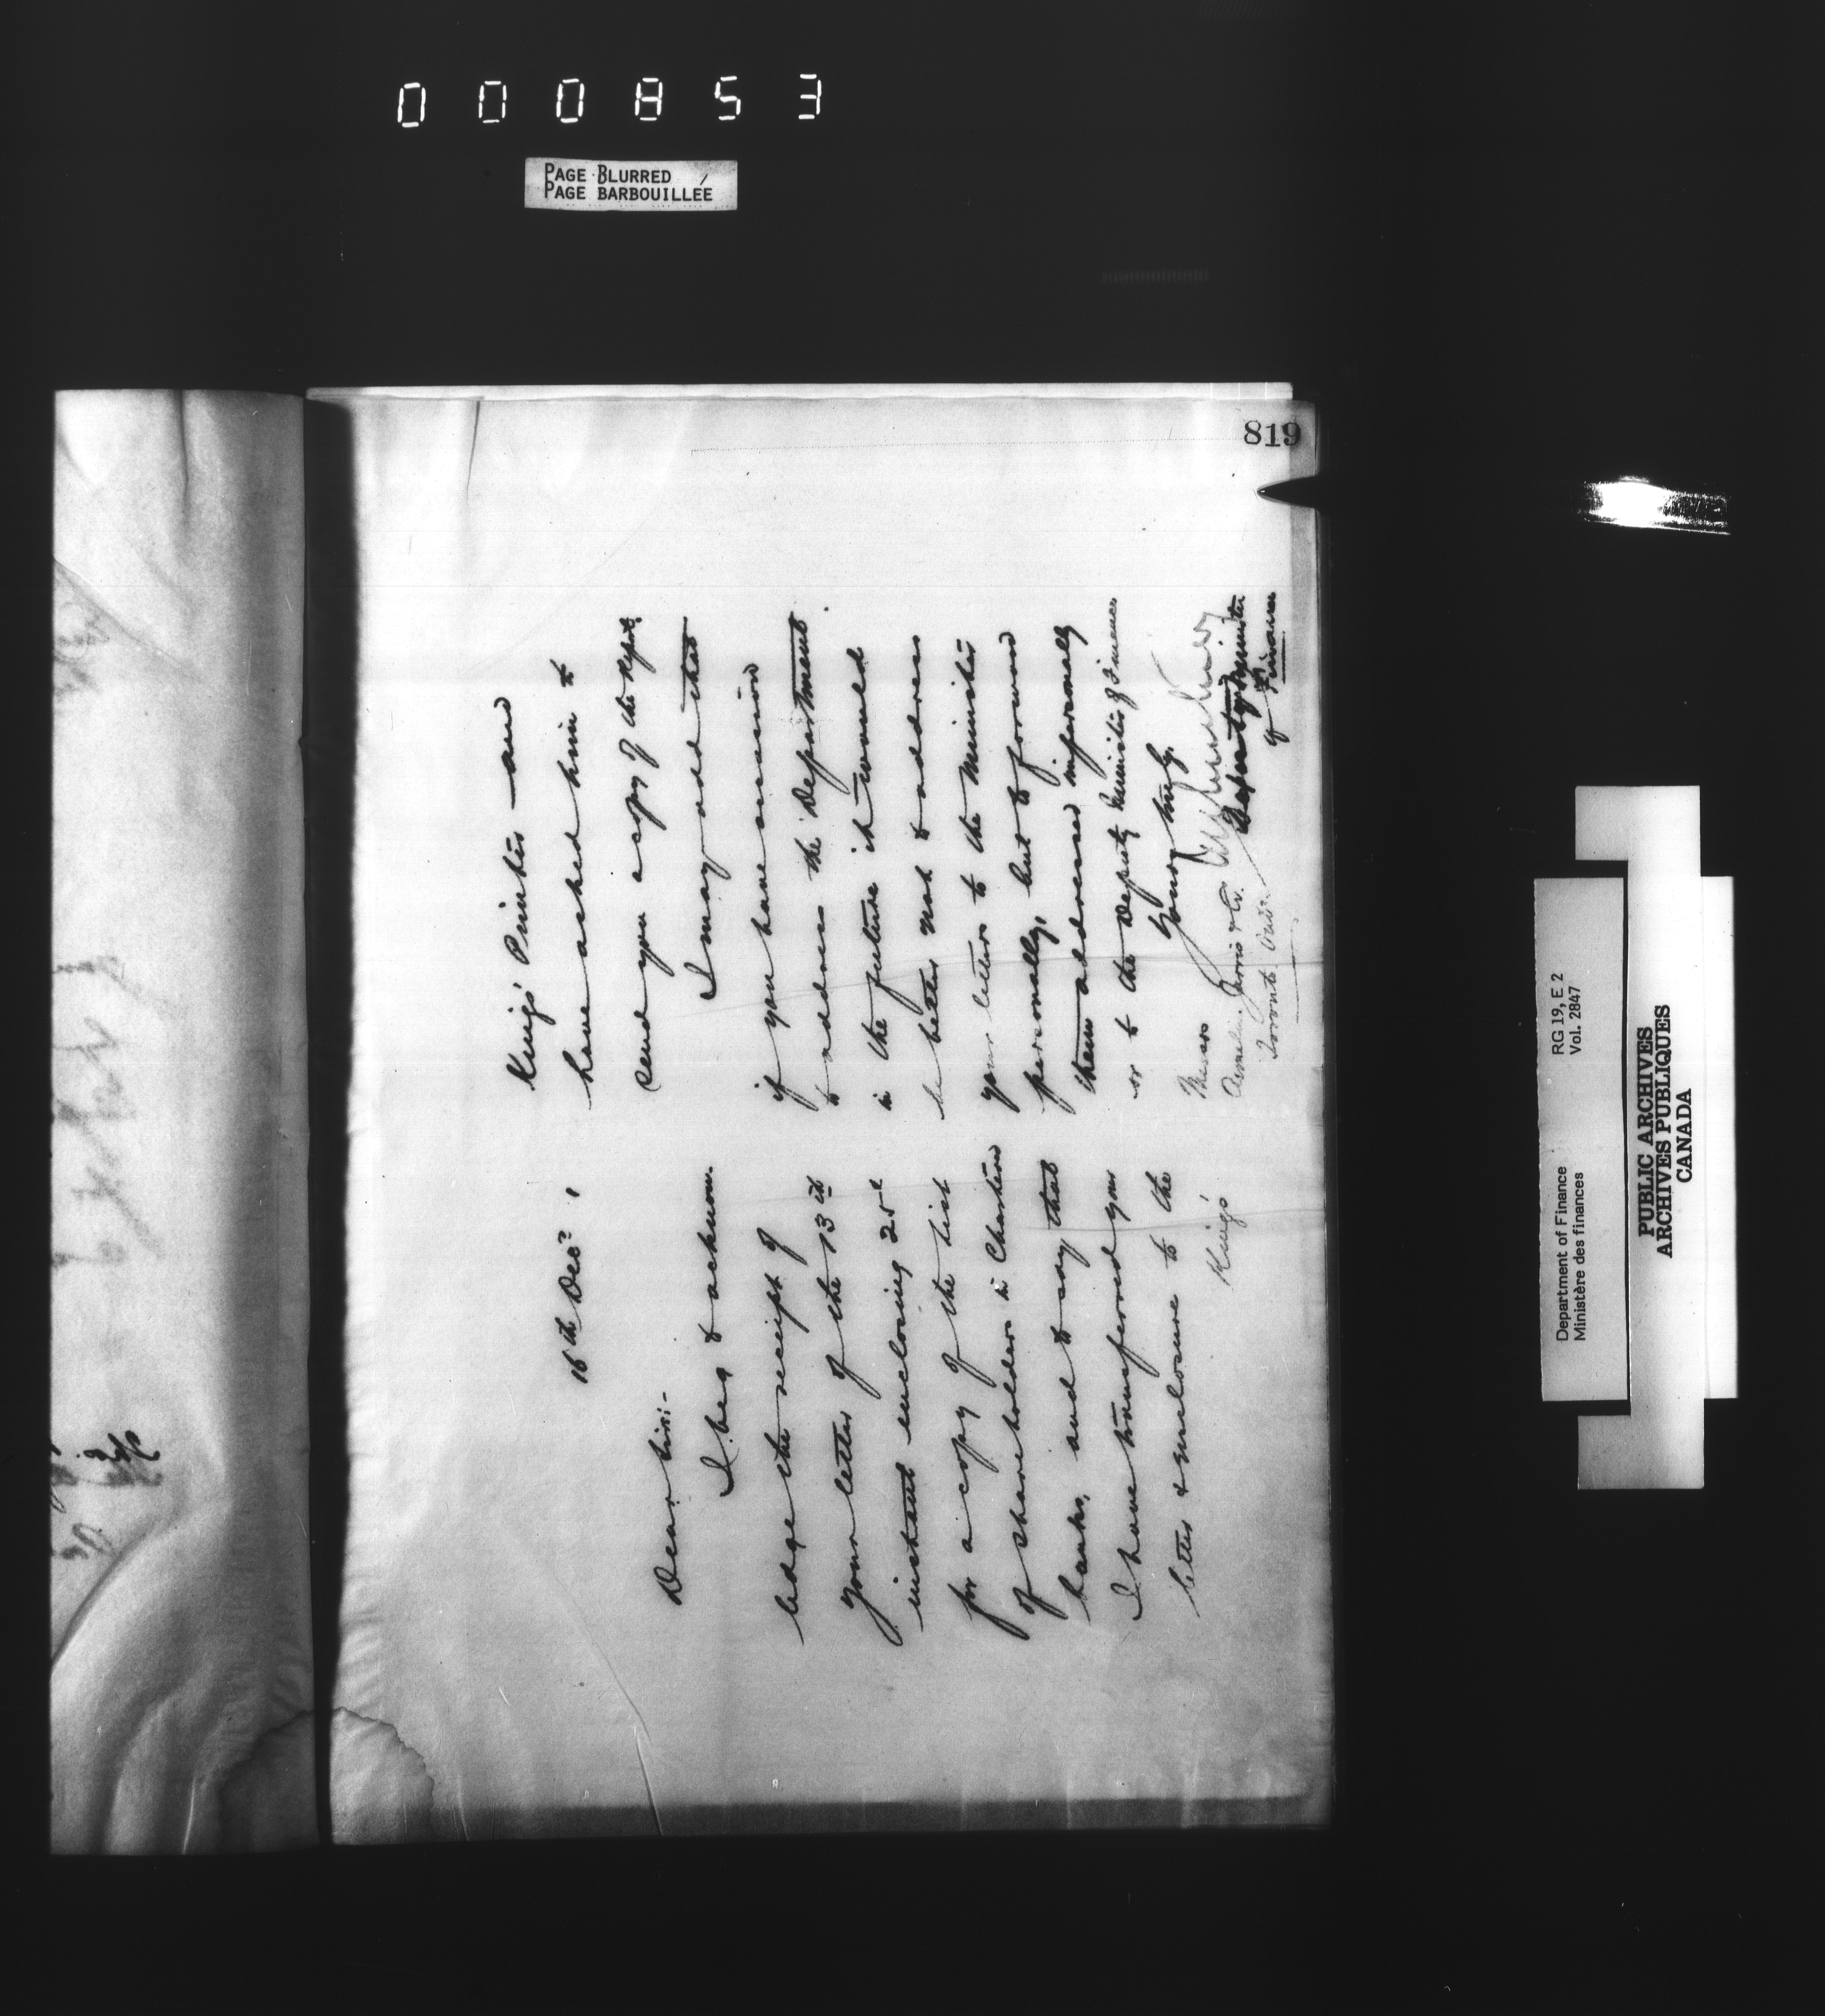 000853
PAGE BLURRED
PAGE BARBOUILLÉE
819
16th Decr 1
Dear Sir:-
I beg to acknow-
ledge the receipt of
your letter of the 13th
instant enclosing 25c
for a copy of the list
of shareholders in Chartered
banks, and to say that
I have transferred your
letter & enclosure to the
King's
King's Printer and
have asked him to
send you a copy of the report.
I may add that
if you have occasion
to address the Department
in the future it would
be better not to address
your letters to the Minister
personally, but to forward
them addressed impersonally
or to the Deputy Minister of Finance
Yours truly,
Deputy Minister
of Finance
Messrs
Jarvis & Co.
Toronto Ont.
Department of Finance RG 19, E 2
Ministère des finances Vol. 2847
PUBLIC ARCHIVES
ARCHIVES PUBLIQUES
CANADA